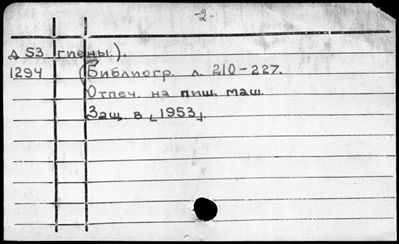 -2-
Д 53 гиены.).
1294 (Библиогр. л. 210-227.
Отпеч. на пиш. маш.
Защ. в [1953].